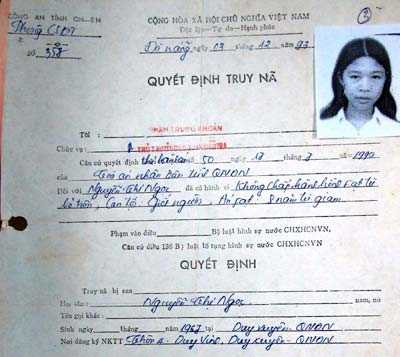 CÔNG AN TỈNH QN-ĐN
Phòng CSĐT
Số 358
CỘNG HÒA XÃ HỘI CHỦ NGHĨA VIỆT NAM
Độc lập — Tự do — Hạnh phúc
Đà nẵng ngày 03 tháng 12 năm 93
QUYẾT ĐỊNH TRUY NÃ
Tôi :
Chức vụ :
Căn cứ quyết định số 50 ngày 13 tháng 3 năm 1990
của Tòa án nhân dân QNĐN
Đối với Nguyễn Thị Ngọc đã có hành vi Không chấp hành
bỏ trốn, Can tội Giết người. Án phạt 8 năm tù giam
Phạm vào điều Bộ luật hình sự nước CHXHCNVN,
Căn cứ điều 136 Bộ luật tố tụng hình sự nước CHXHCNVN.
QUYẾT ĐỊNH
Truy nã bị can
Họ tên : Nguyễn Thị Ngọc nam, nữ
Tên gọi khác :
Sinh ngày tháng năm 1967 tại Duy xuyên - QNĐN
Nơi đăng ký NKTT Thôn 4 - Duy Vinh, Duy xuyên - QNĐN